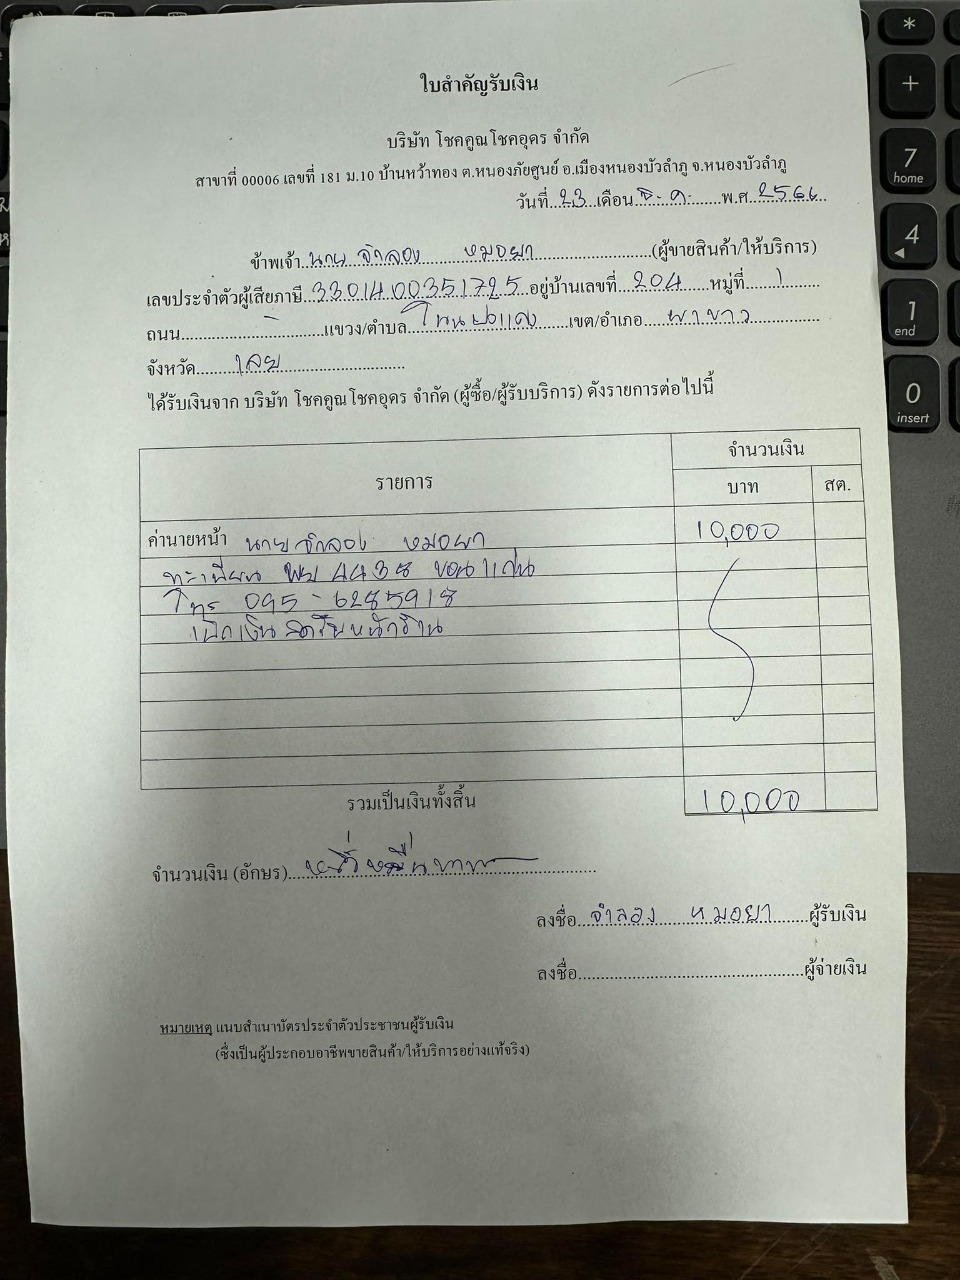 ใบสำคัญรับเงิน
บริษัท โชคคูณโชคอุดร จำกัด
สาขาที่ 00006 เลขที่ 181 ม.10 บ้านหว้าทอง ต.หนองภัยศูนย์ อ.เมืองหนองบัวลำภู จ.หนองบัวลำภู
วันที่ 23 เดือน ธ.ค. พ.ศ. 2566
ข้าพเจ้า นาย จำลอง หมอยา (ผู้ขายสินค้า/ให้บริการ)
เลขประจำตัวผู้เสียภาษี 3301400351725 อยู่บ้านเลขที่ 204 หมู่ที่ 1
ถนน - แขวง/ตำบล โนนปอแดง เขต/อำเภอ ผาขาว
จังหวัด เลย
ได้รับเงินจาก บริษัท โชคคูณโชคอุดร จำกัด (ผู้ซื้อ/ผู้รับบริการ) ดังรายการต่อไปนี้
รายการ จำนวนเงิน
บาท สต.
ค่านายหน้า นาย จำลอง หมอยา 10,000
ทะเบียน 4438 ขอนแก่น
โทร 095-6285918
เบิกเงินสดรับหน้าร้าน
รวมเป็นเงินทั้งสิ้น 10,000
จำนวนเงิน (อักษร) หนึ่งหมื่นบาท
ลงชื่อ จำลอง หมอยา ผู้รับเงิน
ลงชื่อ ผู้จ่ายเงิน
หมายเหตุ แนบสำเนาบัตรประจำตัวประชาชนผู้รับเงิน
(ซึ่งเป็นผู้ประกอบอาชีพขายสินค้า/ให้บริการอย่างแท้จริง)
*
+
7
home
4
1
end
0
insert